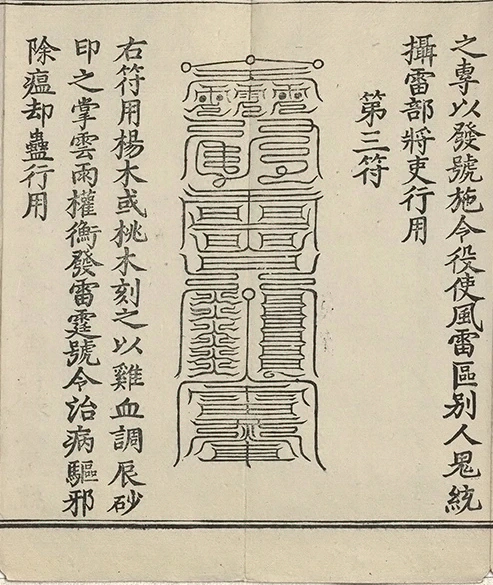 之專以發號施令役使風雷區別人鬼統
攝雷部將吏行用
第三符
右符用楊木或桃木刻之以雞血調辰砂
印之掌雲雨權衡發雷霆號令治病驅邪
除瘟却蠱行用